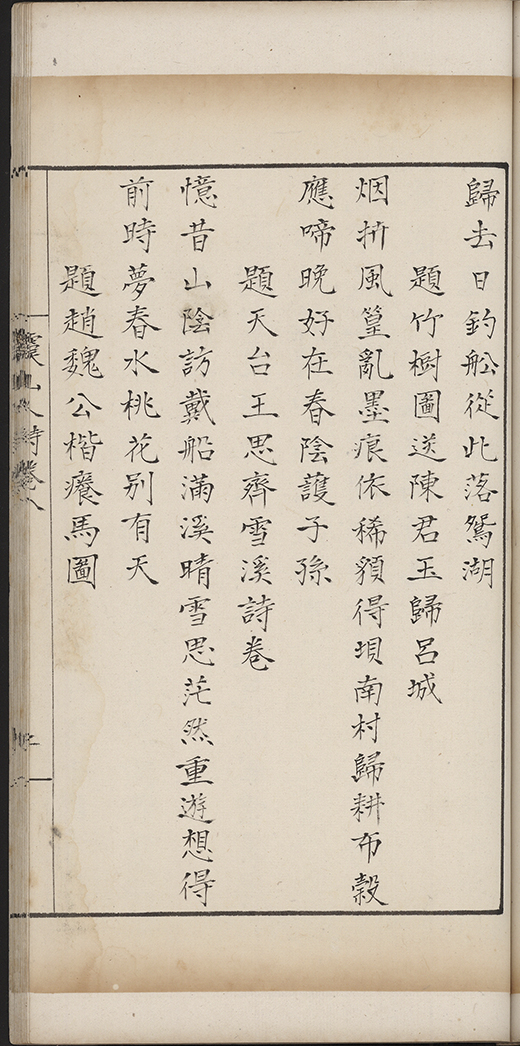 歸去日釣船從此落鴛湖
題竹樹圖送陳君玉歸呂城
烟折風篁亂墨痕依稀貌得垻南村歸耕布穀
應啼晚好在春陰護子孫
題天台王思齊雪溪詩卷
憶昔山陰訪戴船滿溪晴雪思茫然重遊想得
前時夢春水桃花別有天
題趙魏公楷癢馬圖
山人詩卷八